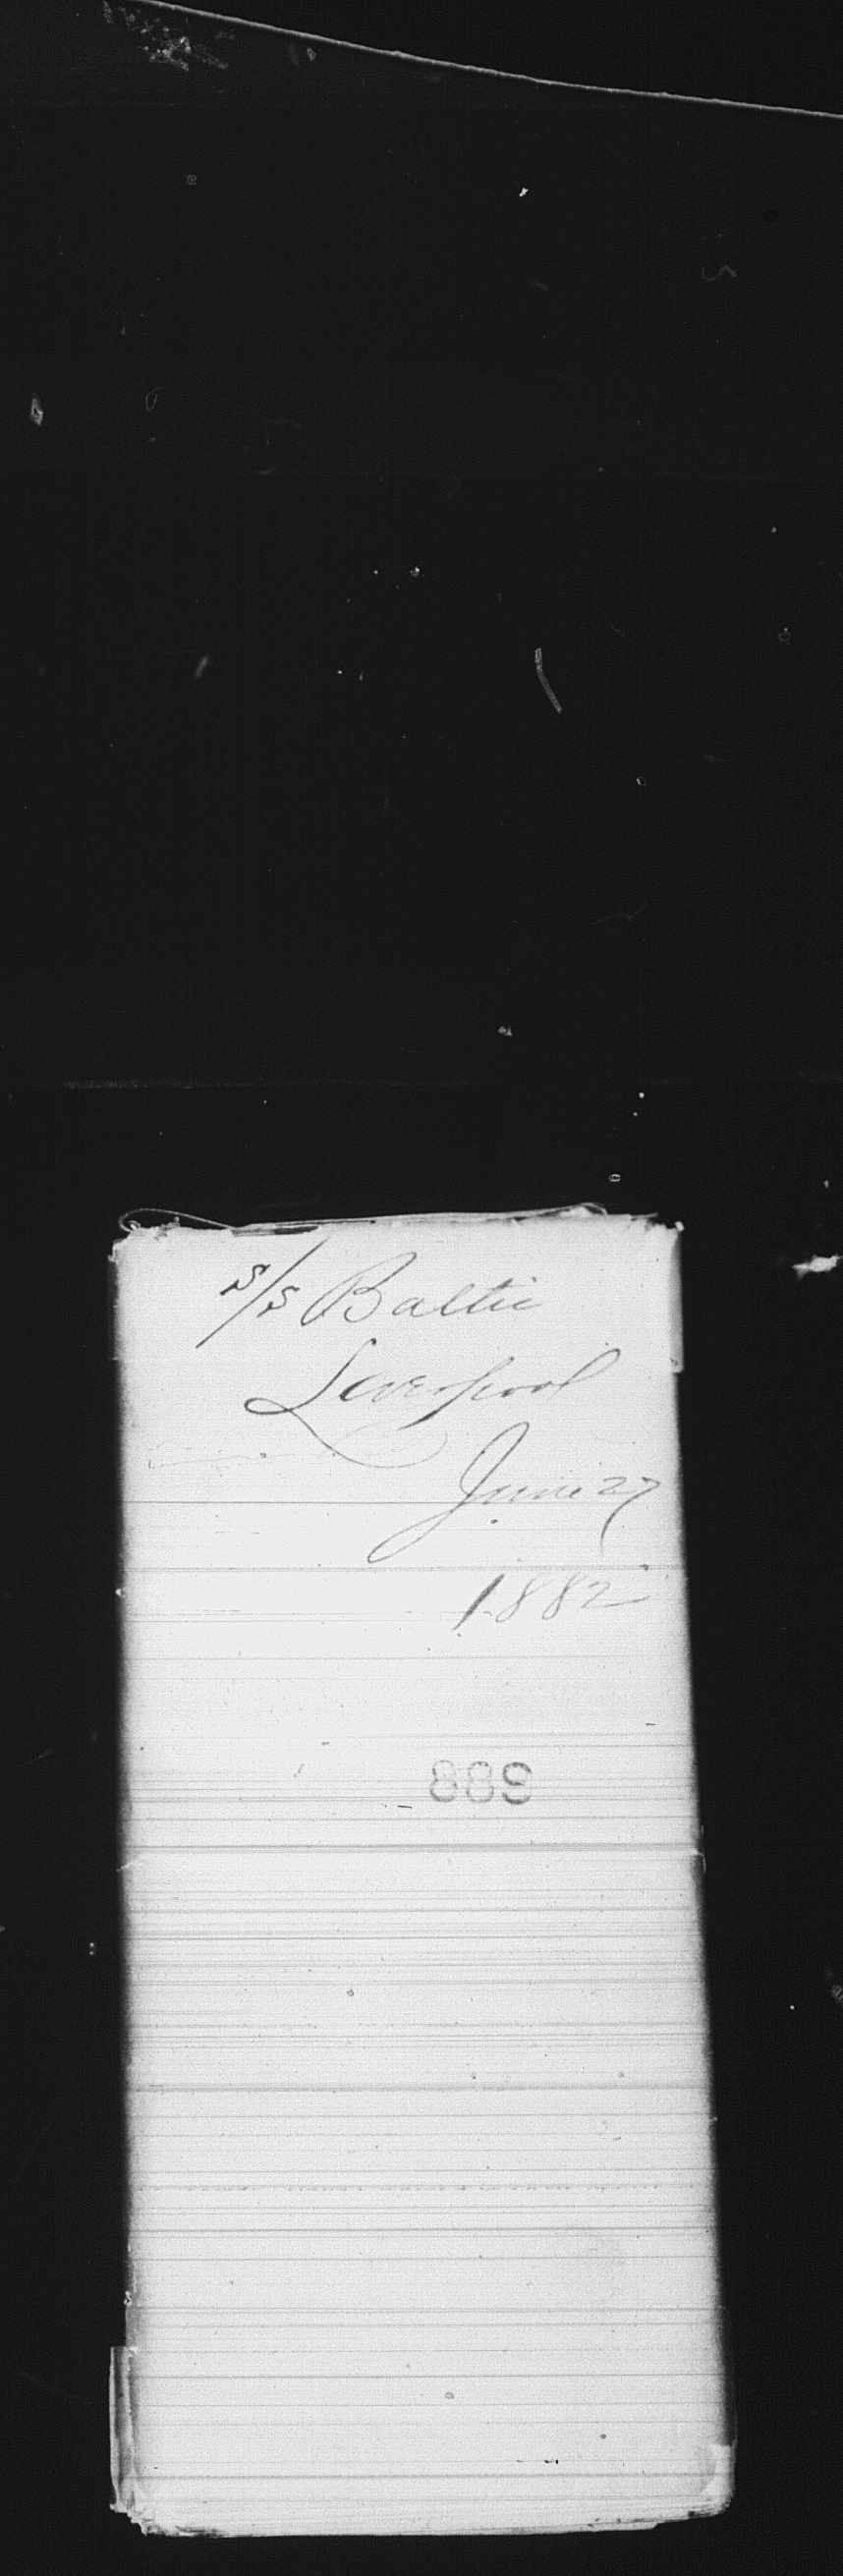 S/S Baltic
Liverpool
June 27
1882
889